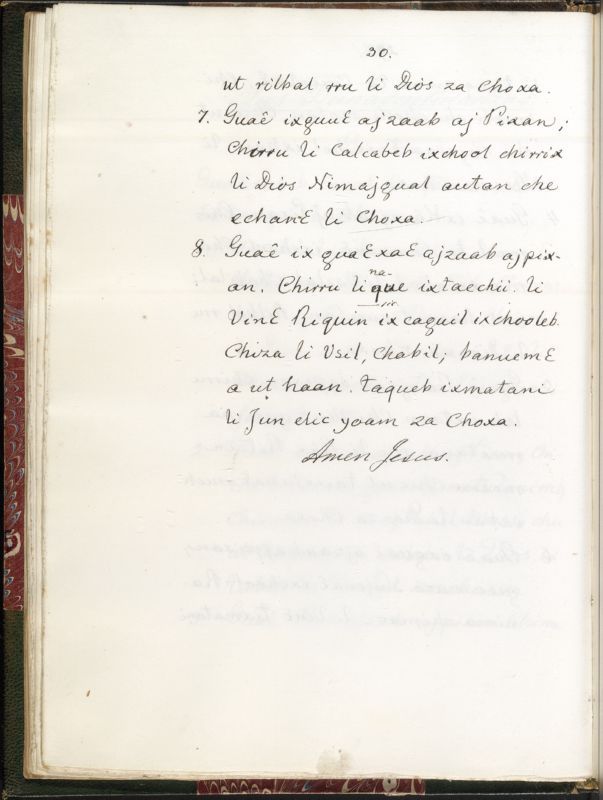 30.
ut rilbal rru li Dios za Choxa.
7. Guaê ixguuƐ ajzaab aj Pixan;
Chirru li Calcabeb ixchool chirrix
li Dios Nimajgual autan che
echanƐ li Choxa.
8. Guaê ix guaƐxaƐ ajzaab ajpix-
an. Chirru li que ixtaechii. li
na-
rir.
VinƐ Riquin ix caguil ixchooleb
Chiza li Vsil, Chabil; banuemƐ
a ut haan. taqueb ixmatani
li Jun elic yoam za Choxa.
Amen Jesus.